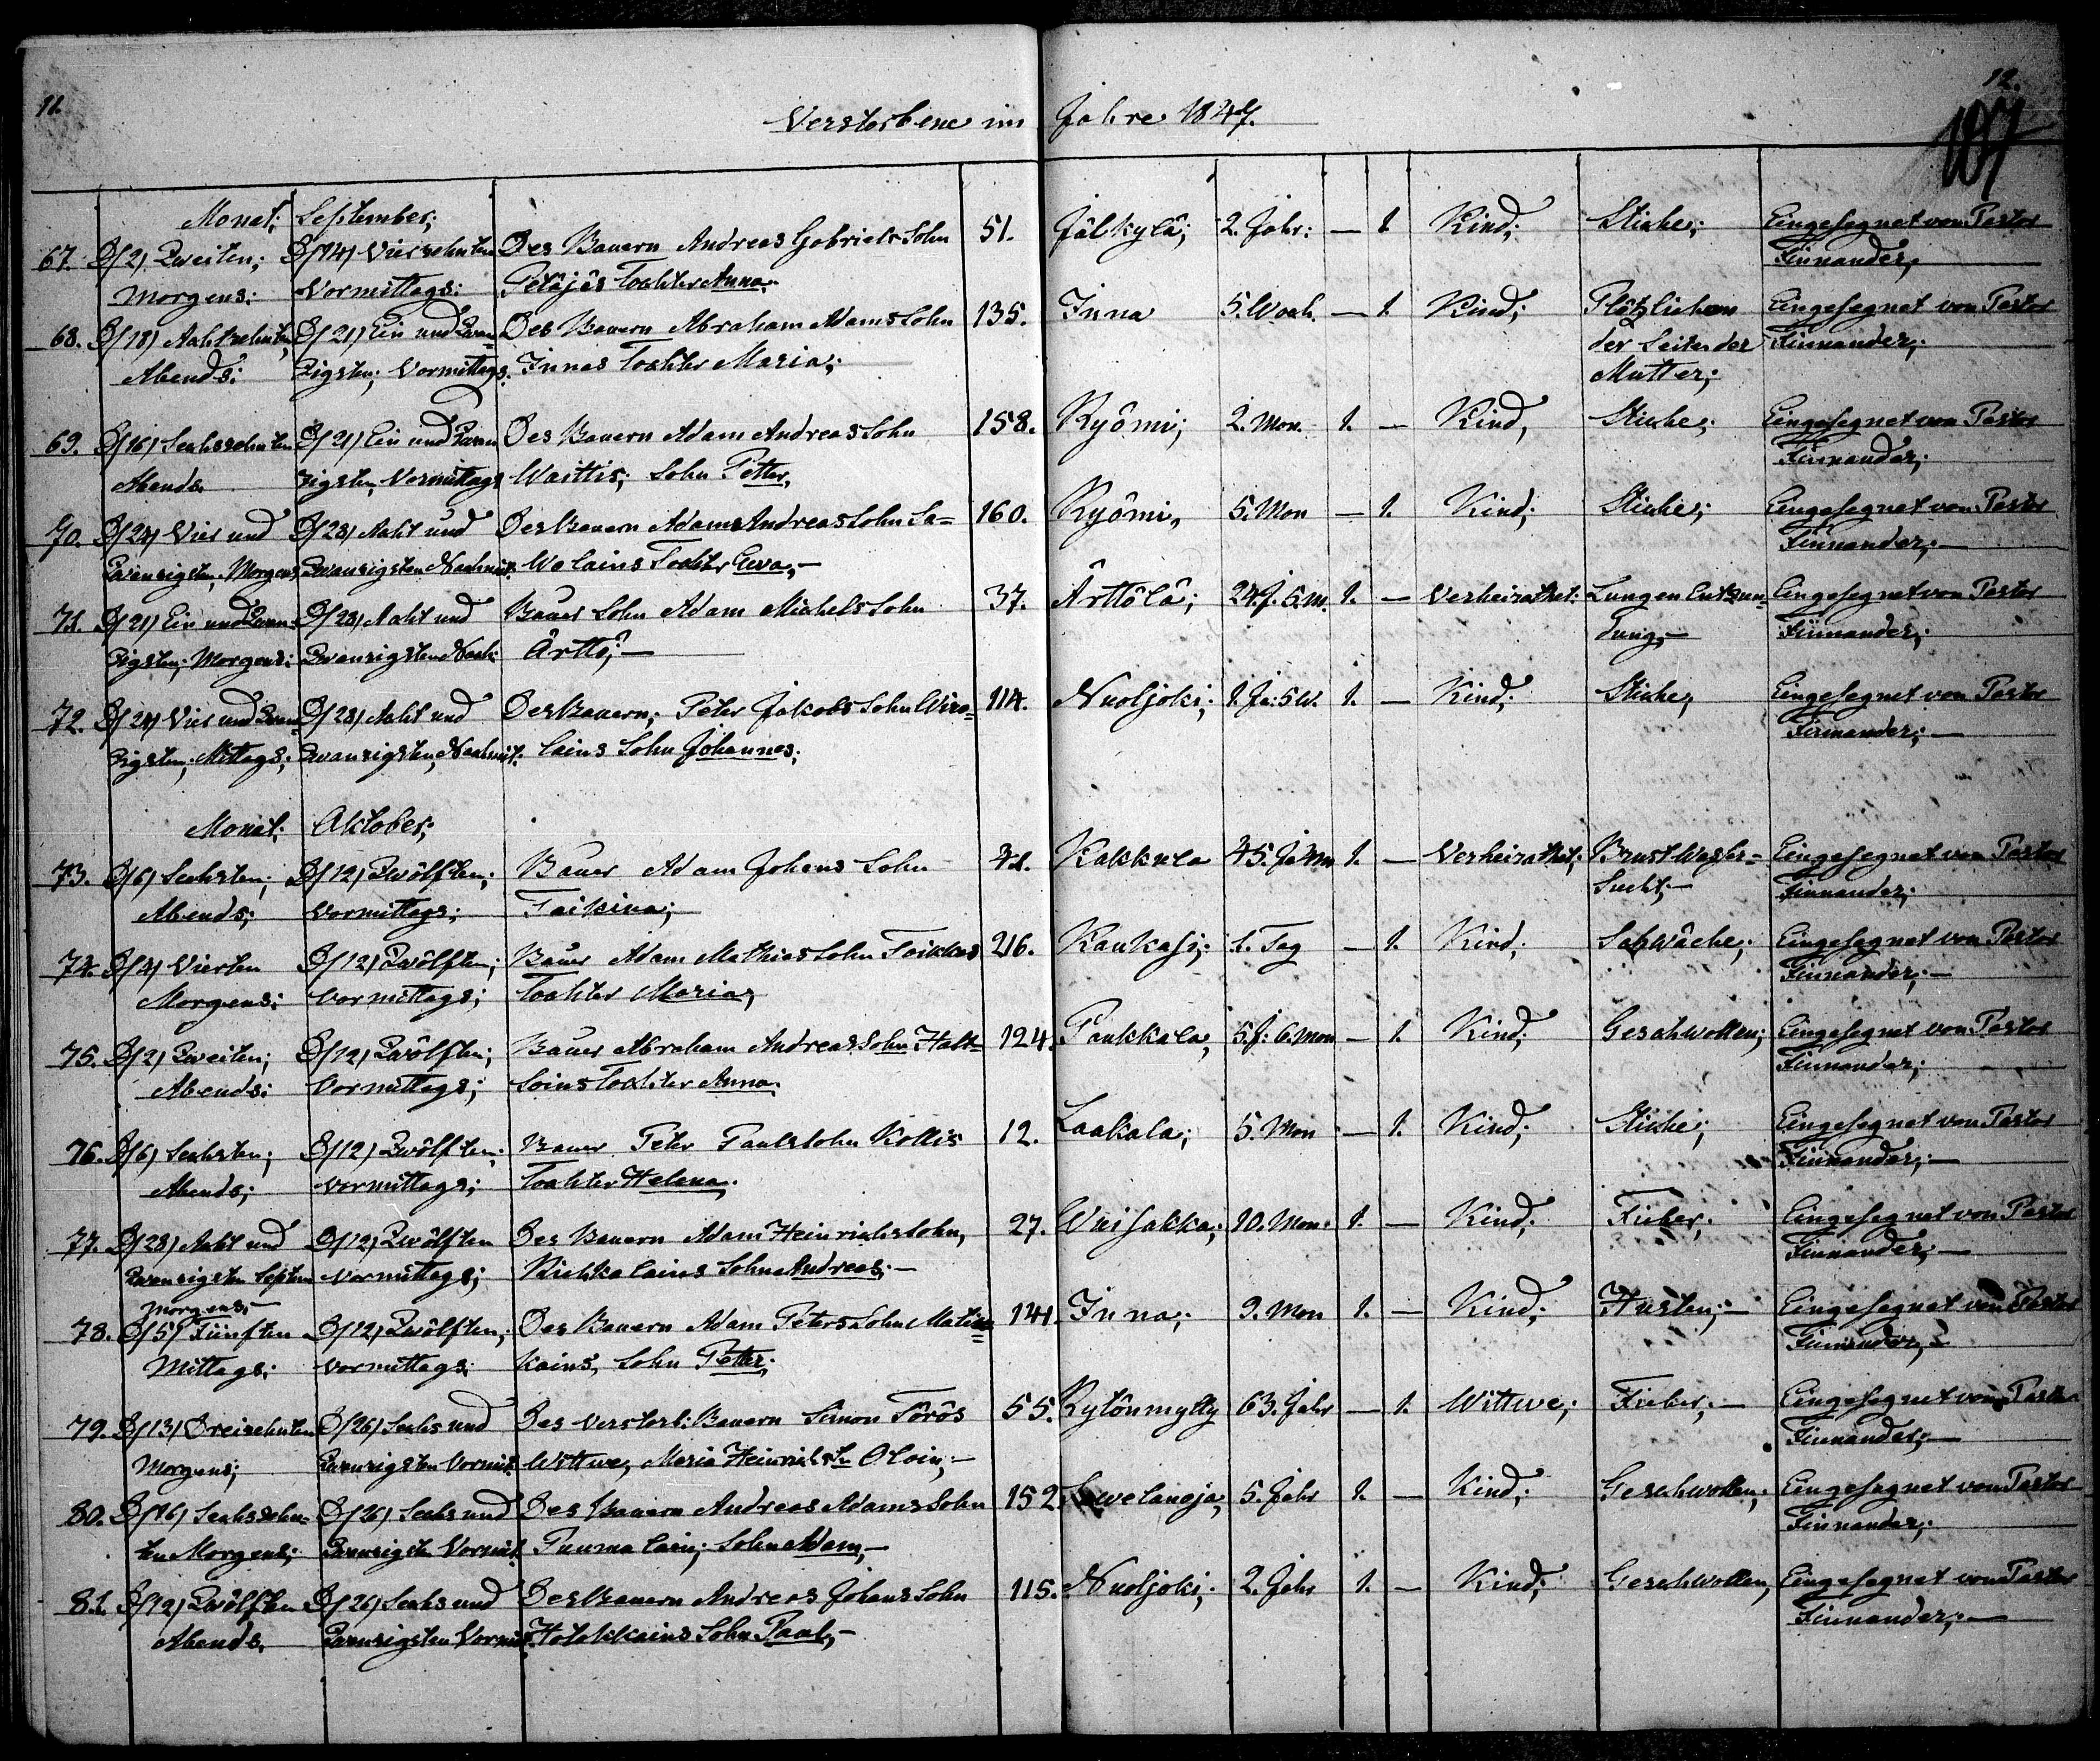 11. 12.
Verstorbene im Jahre 1847.
187
Monat: September;
67. D/2/ Zweiten; D/14/ Vierzehnten Des Bauern Andreas Gabriels Sohn 51. Jälkylä; 2. Jahr: — 1. Kind; Stiche; Eingesegnet von Pastor
Morgens: Vormittags: Petäjäs Tochter Anna. Finnander,
68. D/18/ Achtzehnten D/21/ Ein und Zwan= Des Bauern Abraham Adams Sohn 135. Inna 5. Woch. — 1. Kind; Plötzlich an Eingesegnet von Pastor
der Seite der Finnander;
Abends: zigsten; Vormittags. Innas Tochter Maria; Mutter;
69. D/16/ Sechszehnten D/21/ Ein und Zwan Des Bauern Adam Andreas Sohn 158. Ryömi; 2. Mon. 1. — Kind, Stiche; Eingesegnet von Pastor
Abends. zigsten, Vormittags Waittis; Sohn Petter, Finnander;
70. D/24/ Vier und D/28/ Acht und Des Bauern Adams Andreas Sohn Sa= 160. Ryömi, 5. Mon — 1. Kind; Stiche; Eingesegnet von Pastor
Zwanzigsten, Morgens Zwanzigsten Nachmit. Wolains Tochter Ewa,— Finnander;—
71. D/21/ Ein und Zwan= D/28/ Acht und Bauer Sohn Adam Michels Sohn 37. Ärttölä; 24. J. 5. M. 1. — Verheirathet: Lungen Entzün= Eingesegnet von Pastor
zigsten; Morgens: Zwanzigsten Nach: Ärttö;— dung,— Finnander;
72. D/24/ Vier und Zwan= D/28/ Acht und Des Bauern; Peter Jakobs Sohn Wiro= 114. Nuoljoki; 1. Ja: 5 W. 1. — Kind; Stiche; Eingesegnet von Pastor
zigsten; Mittags; Zwanzigsten, Nachmit. lains Sohn Johannes; Finnander;—
Monat: Oktober;
73. D/6/ Sechsten; D/12/ Zwölften; Bauer Adam Johans Sohn Kakkula 1. — Verheirathet; Brust Wasser= Eingesegnet von Pastor
Abends; Vormittags; Taikina; Sucht;— Finnander;
74. D/4/ Vierten D/12/ Zwölften; Bauer Adam Mathias Sohn Toikkas 216. Kaukasi; 1. Tag — 1. Kind; Schwäche; Eingesegnet von Pastor
Morgens; Vormittags; Tochter Maria, Finnander;—
75. D/2/ Zweiten; D/12/ Zwölften; Bauer Abraham Andreas Sohn Hatt= 124. Paukkala, 5. J: 6. Mon — 1. Kind; Geschwollen; Eingesegnet von Pastor
Abends: Vormittags; Tochter Anna. Finnander;
76. D/6/ Sechsten; D/12/ Zwölften; Bauer Peter Pauls Sohn Kottis 12. Laakala; 5. Mon — 1. Kind; Stiche; Eingesegnet von Pastor
Abends; Vormittags; Tochter Helena. Finnander;—
77. D/28/ Acht und D/12/ Zwölften Des Bauern Adam Heinrichs Sohn, 27. Wuisakka; 10. Mon. 1. — Kind; Fieber; Eingesegnet von Pastor
Zwanzigsten Septem Vormittags; Kiehkalains Sohn Andreas;— Finnander;—
Morgens;—
78. D/5/ Fünften D/12/ Zwölften; Des Bauern Adam Peters Sohn Matis= 141. Inna; 9. Mon 1. — Kind; Husten;— Eingesegnet von Pastor
Mittags: Vormittags; kains, Sohn Petter; Finnander,
79. D/13/ Dreizehnten D/26/ Sechs und Des verstorb: Bauern Simon Törös 55. Kylönmylly 63. Jahr — 1. Wittwe; Fieber;— Eingesegnet von Pastor
Morgens; Zwanzigsten Vormit. Wittwe, Maria Heinrichs Oloin;— Finnander;—
80. D/16/ Sechszehn= D/26/ Sechs und Des Bauern Andreas Adams Sohn 152. 5. Jahr 1. — Kind; Geschwollen; Eingesegnet von Pastor
ten Morgens; Zwanzigsten Vormit. Puumalain; Sohn Adam,— Finnander;
81. D/12/ Zwölften D/26/ Sechs und Des Bauern Andreas Johans Sohn 115. Nuoljoki; 2. Jahr 1. — Kind; Geschwollen, Eingesegnet von Pastor
Abends. Zwanzigsten Vormit. Hotakkains Sohn Paul,— Finnander;—